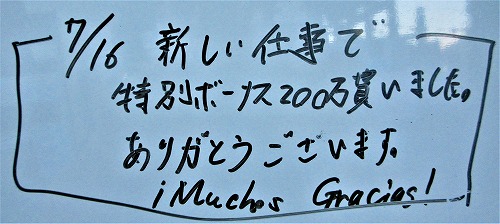 7/16 新しい仕事で
特別ボーナス200万貰いました。
ありがとうございます。
¡Muchos Gracias!